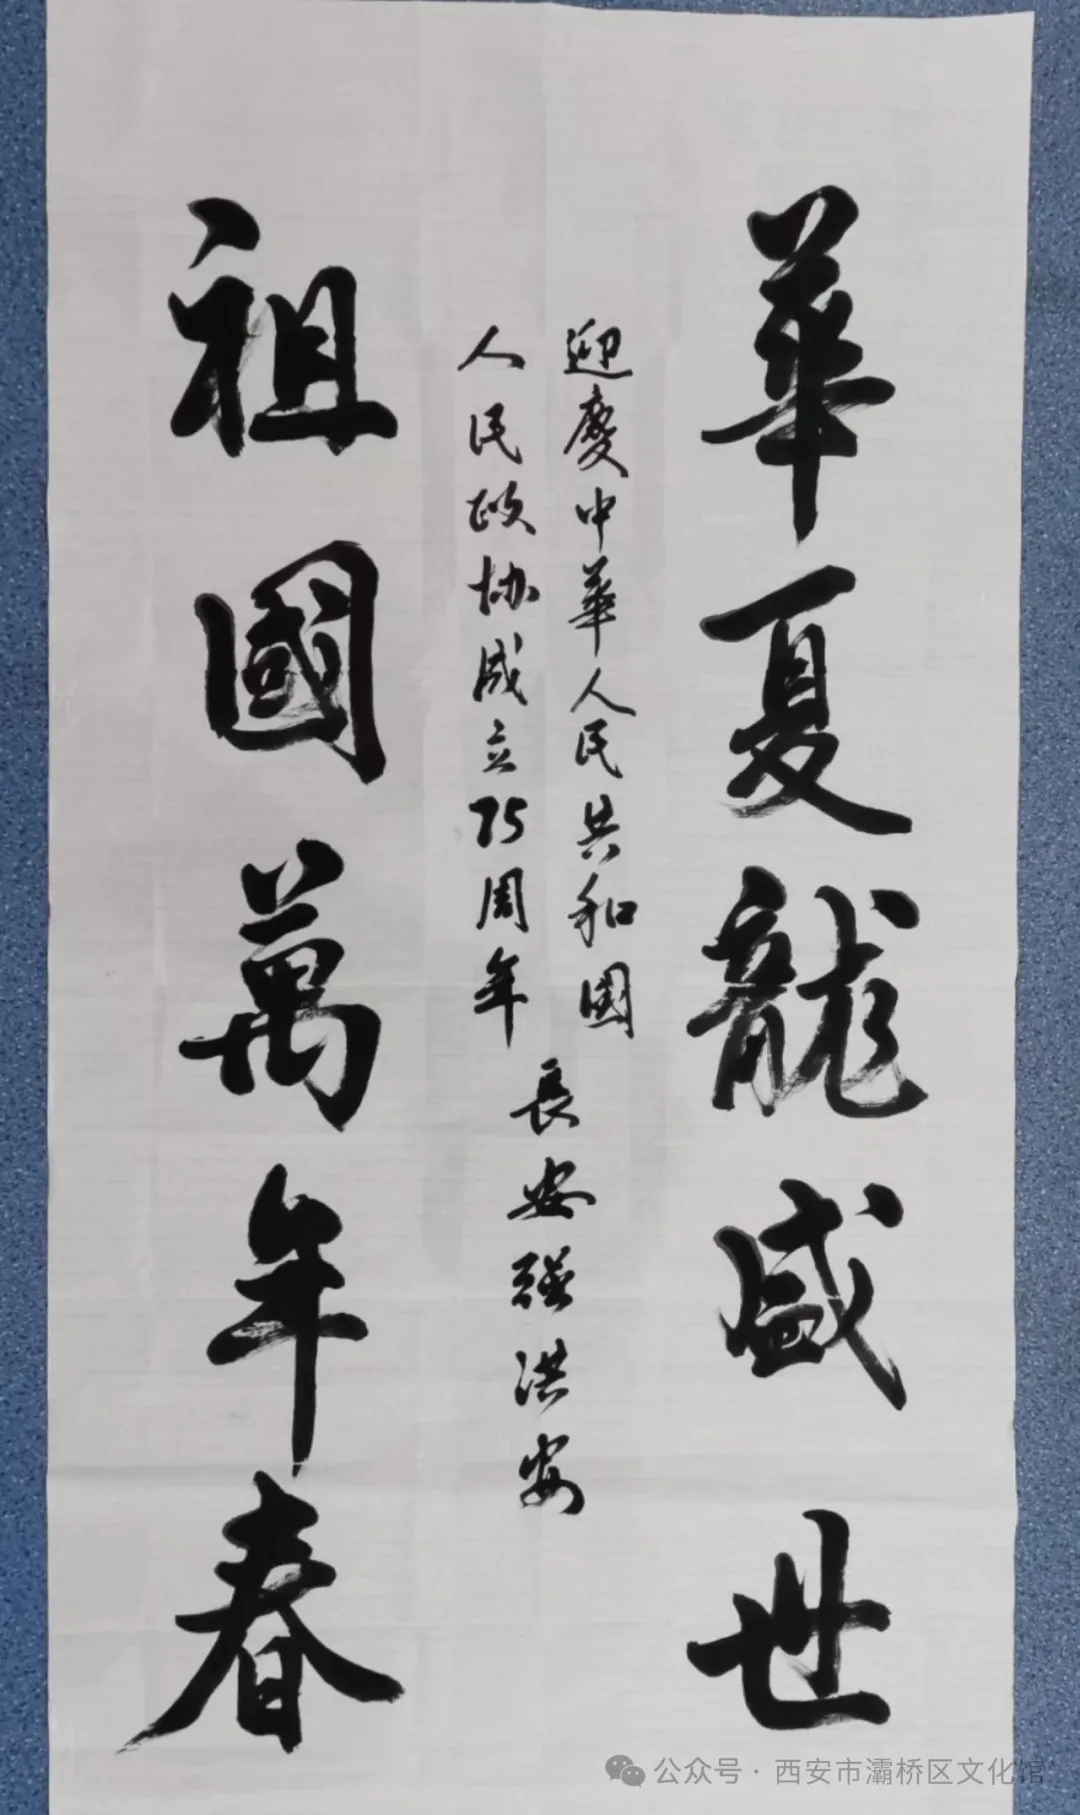 華夏龍盛世
迎慶中華人民共和國
人民政协成立75周年
長安強洪安
祖國萬年春
公众号·西安市灞桥区文化馆